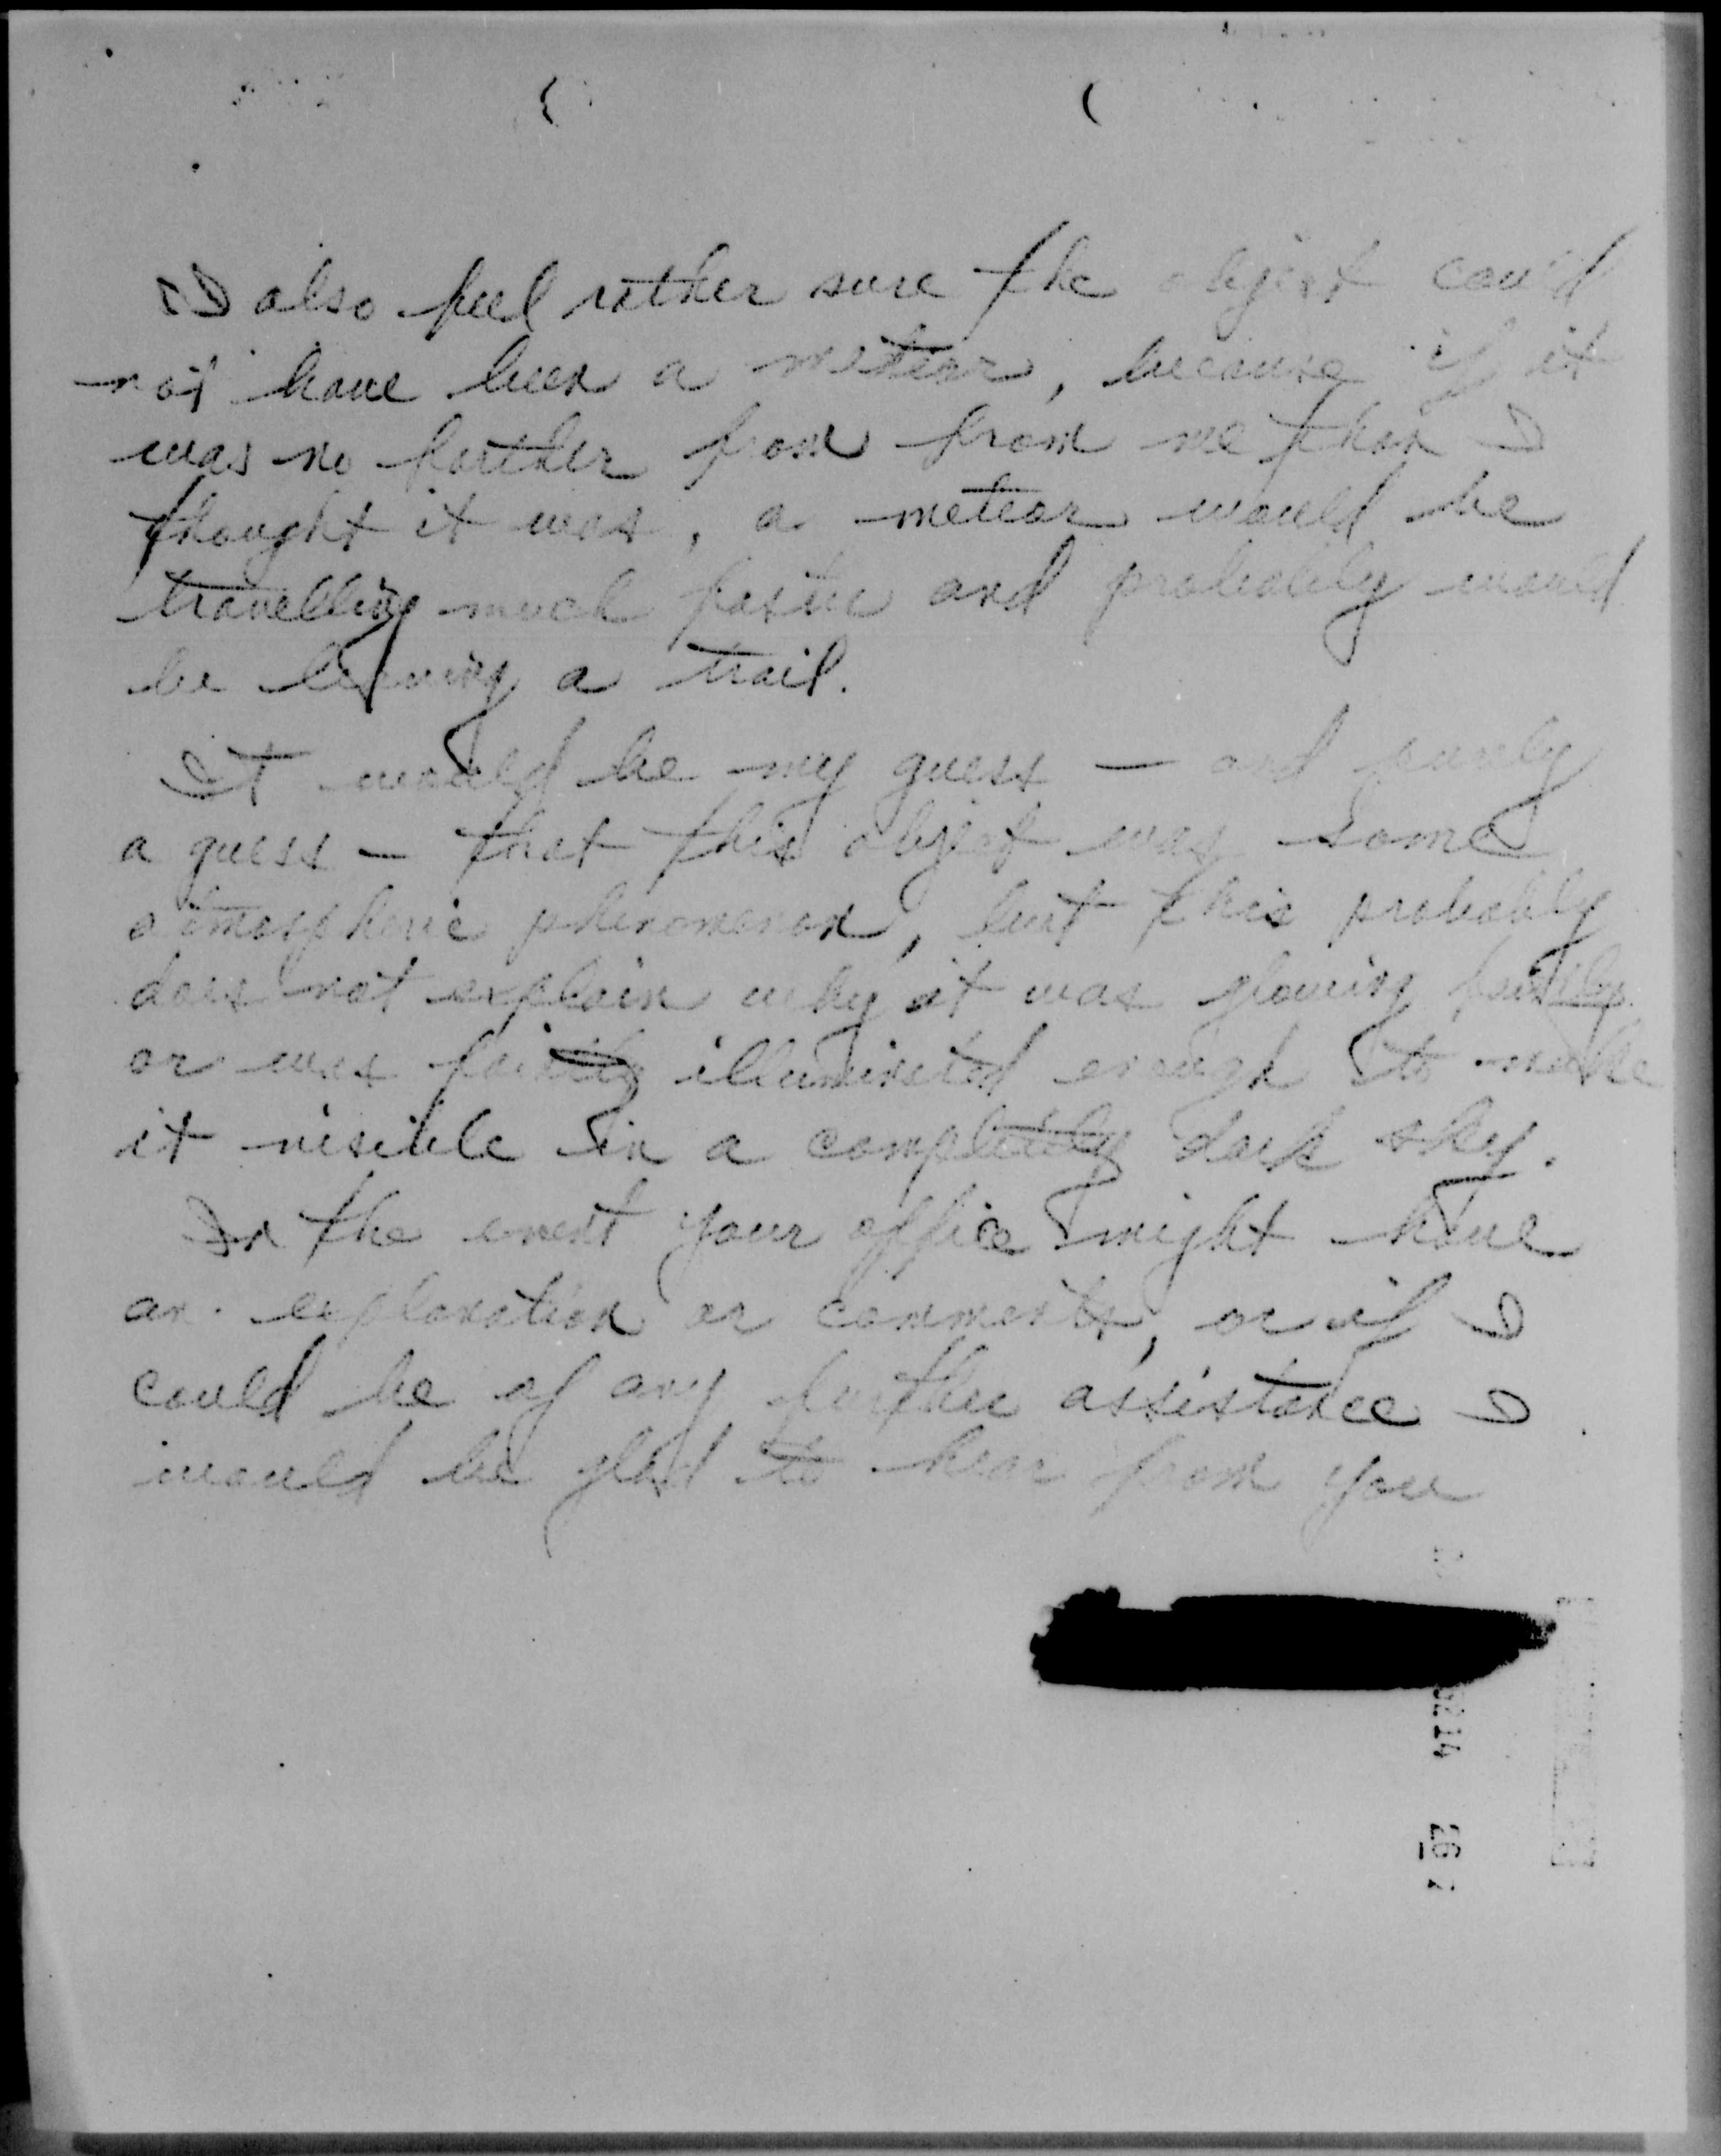 I also feel rather sure the object could
not have been a meteor, because if it
was no farther from from me than I
thought it was, a meteor would be
travelling much faster and probably would
be leaving a trail.
It would be my guess — and purely
a guess — that this object was some
atmospheric phenomenon, but this probably
does not explain why it was glowing faintly
or was faintly illuminated enough to make
it visible in a completely dark sky.
In the event your office might have
an explanation or comments, or if I
could be of any further assistance I
would be glad to hear from you